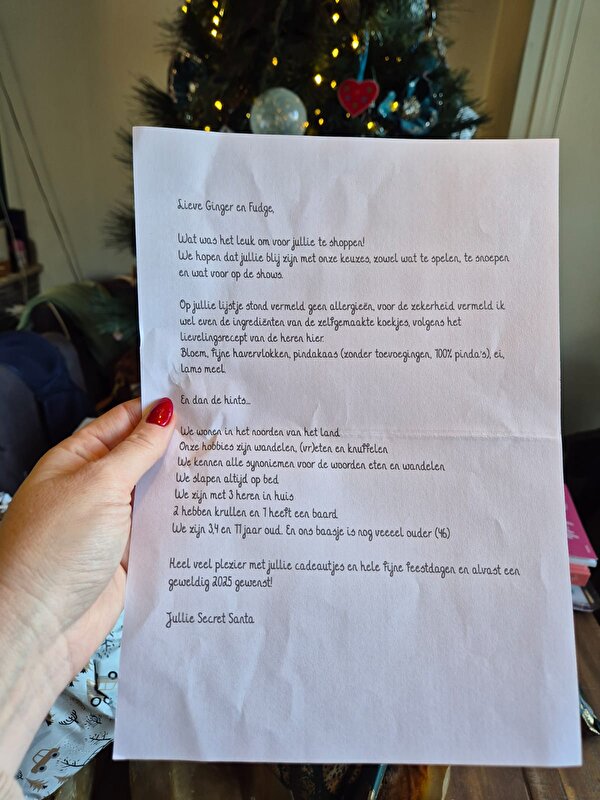 Lieve Ginger en Fudge,
Wat was het leuk om voor jullie te shoppen!
We hopen dat jullie blij zijn met onze keuzes, zowel wat te spelen, te snoepen
en wat voor op de shows.
Op jullie lijstje stond vermeld geen allergieën, voor de zekerheid vermeld ik
wel even de ingrediënten van de zelfgemaakte koekjes, volgens het
lievelingsrecept van de heren hier.
Bloem, fijne havervlokken, pindakaas (zonder toevoegingen, 100% pinda's), ei,
lams meel.
En dan de hints...
We wonen in het noorden van het land
Onze hobbies zijn wandelen, (vr)eten en knuffelen
We kennen alle synoniemen voor de woorden eten en wandelen
We slapen altijd op bed
We zijn met 3 heren in huis
2 hebben krullen en 1 heeft een baard
We zijn 3,4 en 11 jaar oud. En ons baasje is nog veeeel ouder (46)
Heel veel plezier met jullie cadeautjes en hele fijne feestdagen en alvast een
geweldig 2025 gewenst!
Jullie Secret Santa